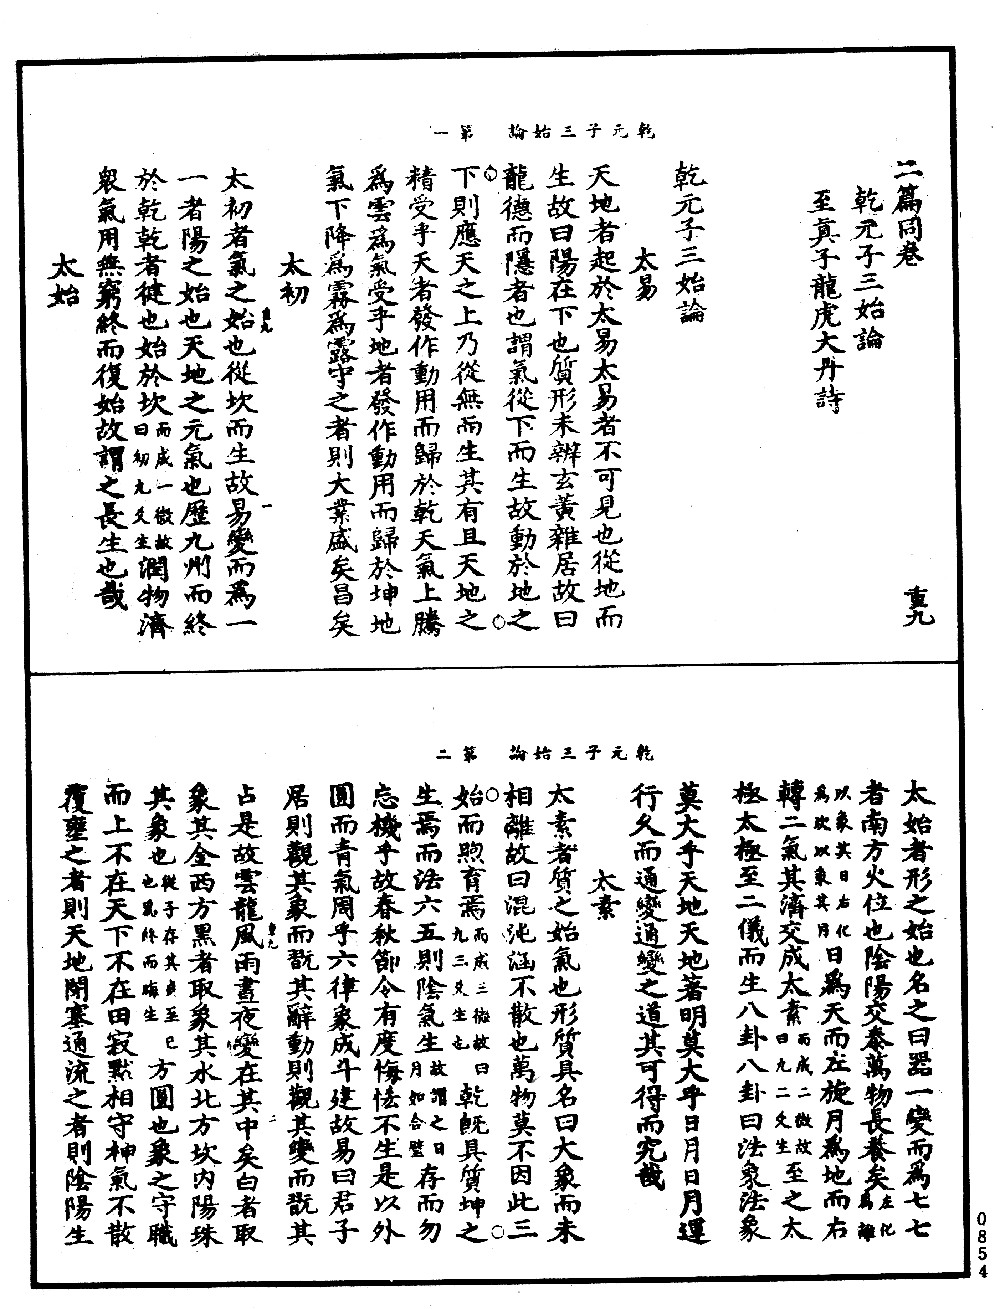 乾元子三始論　第一
二篇同卷　　重九
乾元子三始論
至真子龍虎大丹詩
乾元子三始論
太易
天地者起於太易太易者不可見也從地而
生故曰陽在下也質形未辨玄黃雜居故曰
龍德而隱者也謂氣從下而生故動於地之
下則應天之上乃從無而生其有且天地之
精受乎天者發作動用而歸於乾天氣上騰
為雲為氣受乎地者發作動用而歸於坤地
氣下降為霧為露守之者則大業盛矣昌矣
太初
太初者氣之始也從坎而生故易變而為一
重九　一
一者陽之始也天地之元氣也歷九州而終
於乾乾者健也始於坎而成一微故曰初九爻生潤物濟
衆氣用無窮終而復始故謂之長生也哉
太始
乾元子三始論　第二
太始者形之始也名之曰器一變而為七七
者南方火位也陰陽交泰萬物長養矣左化為離
以象其日右化為坎以象其月日為天而左旋月為地而右
轉二氣其濟交成太素而成二微故曰九二爻生至之太
極太極至二儀而生八卦八卦曰法象法象
莫大乎天地天地著明莫大乎日月日月運
行久而通變通變之道其可得而究哉
太素
太素者質之始氣也形質具名曰大象而未
相離故曰混沌涵不散也萬物莫不因此三
始而煦育焉而成三微故曰九三爻生也乾既具質坤之
生焉而法六五則陰氣生故謂之日月如合璧存而勿
忘機乎故春秋節令有度悔恡不生是以外
圓而青氣周乎六律象成斗建故易曰君子
居則觀其象而翫其辭動則觀其變而翫其
重九　二
占是故雲龍風雨晝夜變在其中矣白者取
象其金西方黑者取象其水北方坎內陽珠
其象也從子存其貞至巳也氣終而晦生方圓也象之守職
而上不在天下不在田寂默相守神氣不散
覆壅之者則天地閉塞通流之者則陰陽生
0854